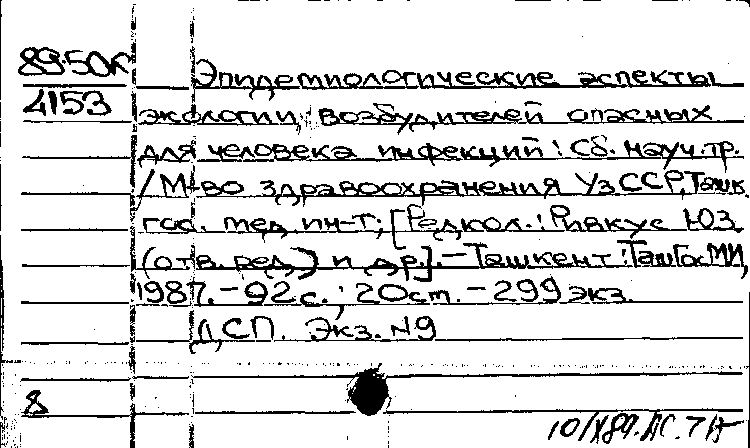 89-50к
4153
Эпидемиологические аспекты
экологии возбудителей опасных
для человека инфекций: Сб. науч.тр.
/М-во здравоохранения УзССР, Ташк.
гос. мед. ин-т; [Редкол.: Ривкус Ю.З.
(отв. ред.) и др.].-Ташкент: ТашГосМИ,
1987.-92с.; 20см.-299экз.
ДСП. Экз. N9
8